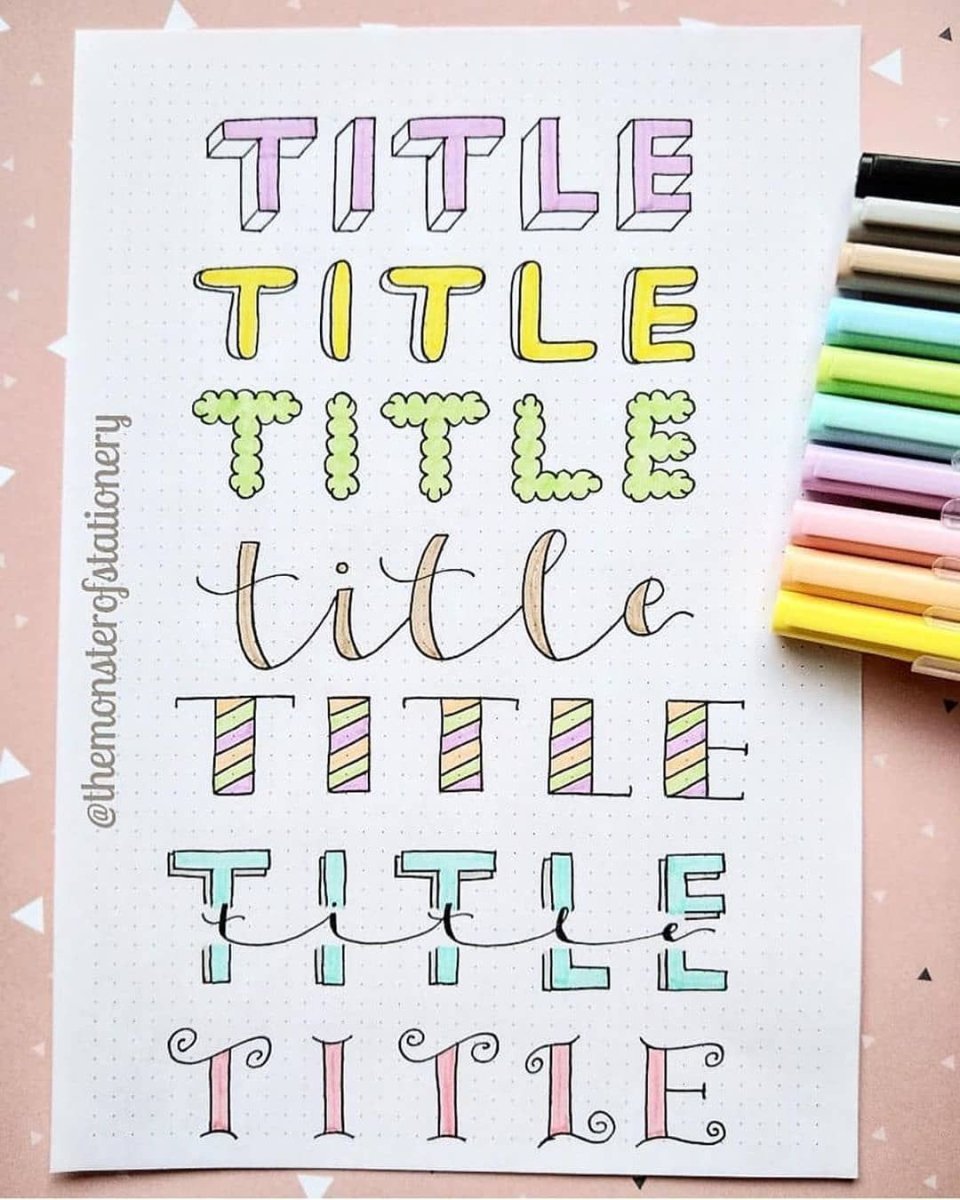 TITLE
TITLE
TITLE
title
TITLE
TITLE
title
TITLE
@themonsterofstationery